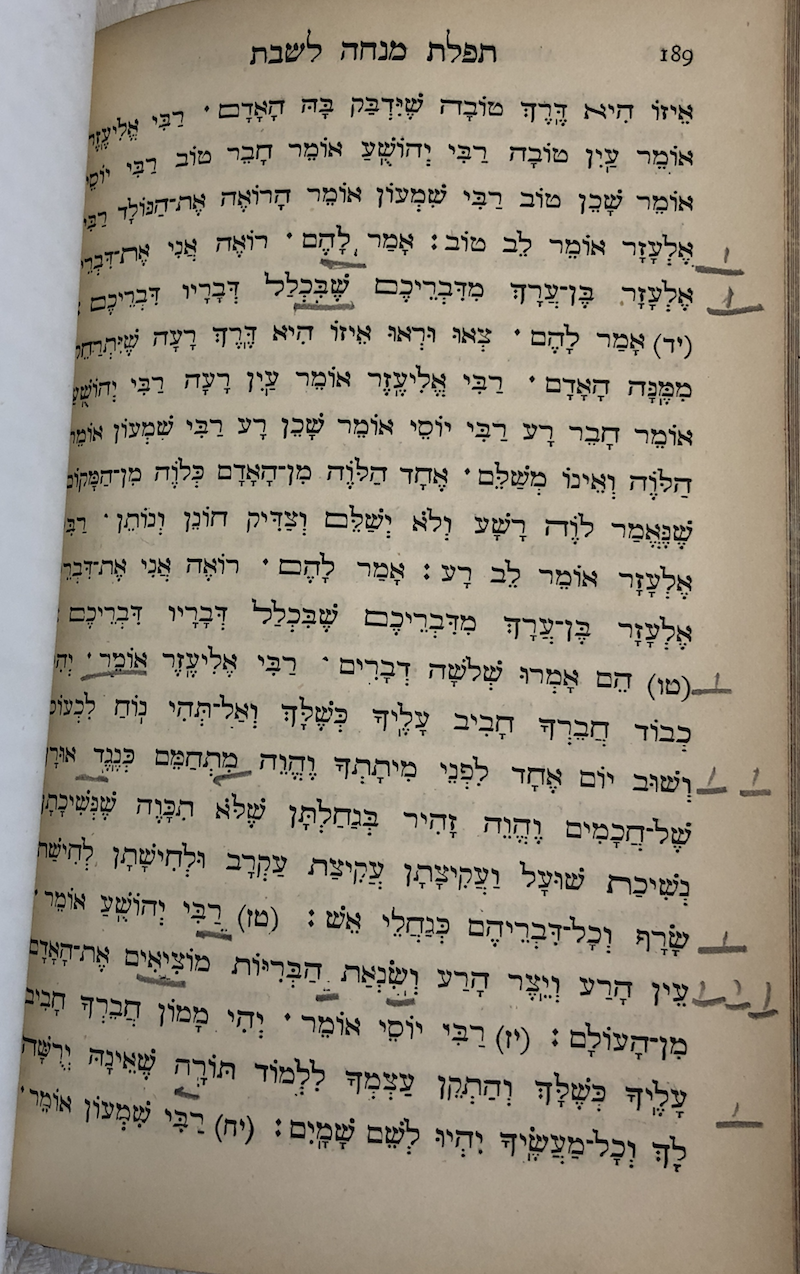 תפלת מנחה לשבת 189
אֵיזוֹ הִיא דֶּרֶךְ טוֹבָה שֶׁיִּדְבַּק בָּהּ הָאָדָם · רַבִּי אֱלִיעֶזֶר
אוֹמֵר עַיִן טוֹבָה רַבִּי יְהוֹשֻׁעַ אוֹמֵר חָבֵר טוֹב רַבִּי יוֹסֵי
אוֹמֵר שָׁכֵן טוֹב רַבִּי שִׁמְעוֹן אוֹמֵר הָרוֹאֶה אֶת־הַנּוֹלָד רַבִּי
אֶלְעָזָר אוֹמֵר לֵב טוֹב: אָמַר לָהֶם · רוֹאֶה אֲנִי אֶת־דִּבְרֵי
אֶלְעָזָר בֶּן־עֲרָךְ מִדִּבְרֵיכֶם שֶׁבִּכְלַל דְּבָרָיו דִּבְרֵיכֶם:
(יד) אָמַר לָהֶם · צְאוּ וּרְאוּ אֵיזוֹ הִיא דֶּרֶךְ רָעָה שֶׁיִּתְרַחֵק
מִמֶּנָּה הָאָדָם · רַבִּי אֱלִיעֶזֶר אוֹמֵר עַיִן רָעָה רַבִּי יְהוֹשֻׁעַ
אוֹמֵר חָבֵר רָע רַבִּי יוֹסֵי אוֹמֵר שָׁכֵן רָע רַבִּי שִׁמְעוֹן אוֹמֵר
הַלּוֶֹה וְאֵינוֹ מְשַׁלֵּם · אֶחָד הַלּוֶֹה מִן־הָאָדָם כְּלוֶֹה מִן־הַמָּקוֹם
שֶׁנֶּאֱמַר לוֶֹה רָשָׁע וְלֹא יְשַׁלֵּם וְצַדִּיק חוֹנֵן וְנוֹתֵן · רַבִּי
אֶלְעָזָר אוֹמֵר לֵב רָע: אָמַר לָהֶם · רוֹאֶה אֲנִי אֶת־דִּבְרֵי
אֶלְעָזָר בֶּן־עֲרָךְ מִדִּבְרֵיכֶם שֶׁבִּכְלַל דְּבָרָיו דִּבְרֵיכֶם:
(טו) הֵם אָמְרוּ שְׁלֹשָׁה דְבָרִים · רַבִּי אֱלִיעֶזֶר אוֹמֵר · יְהִי
כְבוֹד חֲבֵרְךָ חָבִיב עָלֶיךָ כְּשֶׁלָּךְ וְאַל־תְּהִי נוֹחַ לִכְעוֹס
וְשׁוּב יוֹם אֶחָד לִפְנֵי מִיתָתְךָ וֶהֱוֵה מִתְחַמֵּם כְּנֶגֶד אוּרָן
שֶׁל־חֲכָמִים וֶהֱוֵה זָהִיר בְּגַחַלְתָּן שֶׁלֹּא תִכָּוֶה שֶׁנְּשִׁיכָתָן
נְשִׁיכַת שׁוּעָל וַעֲקִיצָתָן עֲקִיצַת עַקְרָב וּלְחִישָׁתָן לְחִישַׁת
שָׂרָף וְכָל־דִּבְרֵיהֶם כְּגַחֲלֵי אֵשׁ: (טז) רַבִּי יְהוֹשֻׁעַ אוֹמֵר ·
עַיִן הָרַע וְיֵצֶר הָרַע וְשִׂנְאַת הַבְּרִיּוֹת מוֹצִיאִים אֶת־הָאָדָם
מִן־הָעוֹלָם: (יז) רַבִּי יוֹסֵי אוֹמֵר · יְהִי מָמוֹן חֲבֵרְךָ חָבִיב
עָלֶיךָ כְּשֶׁלָּךְ וְהַתְקֵן עַצְמְךָ לִלְמוֹד תּוֹרָה שֶׁאֵינָהּ יְרֻשָּׁה
לָךְ וְכָל־מַעֲשֶׂיךָ יִהְיוּ לְשֵׁם שָׁמָיִם: (יח) רַבִּי שִׁמְעוֹן אוֹמֵר ·